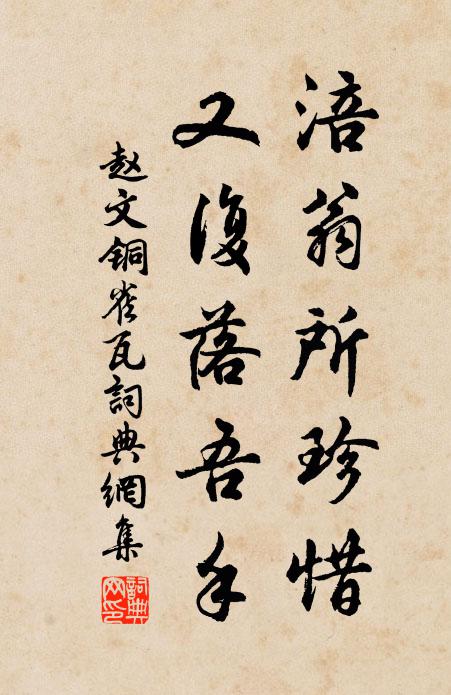 涪翁所珍惜
又復落吾手
赵文铜雀瓦詞典網集
詞典
网印